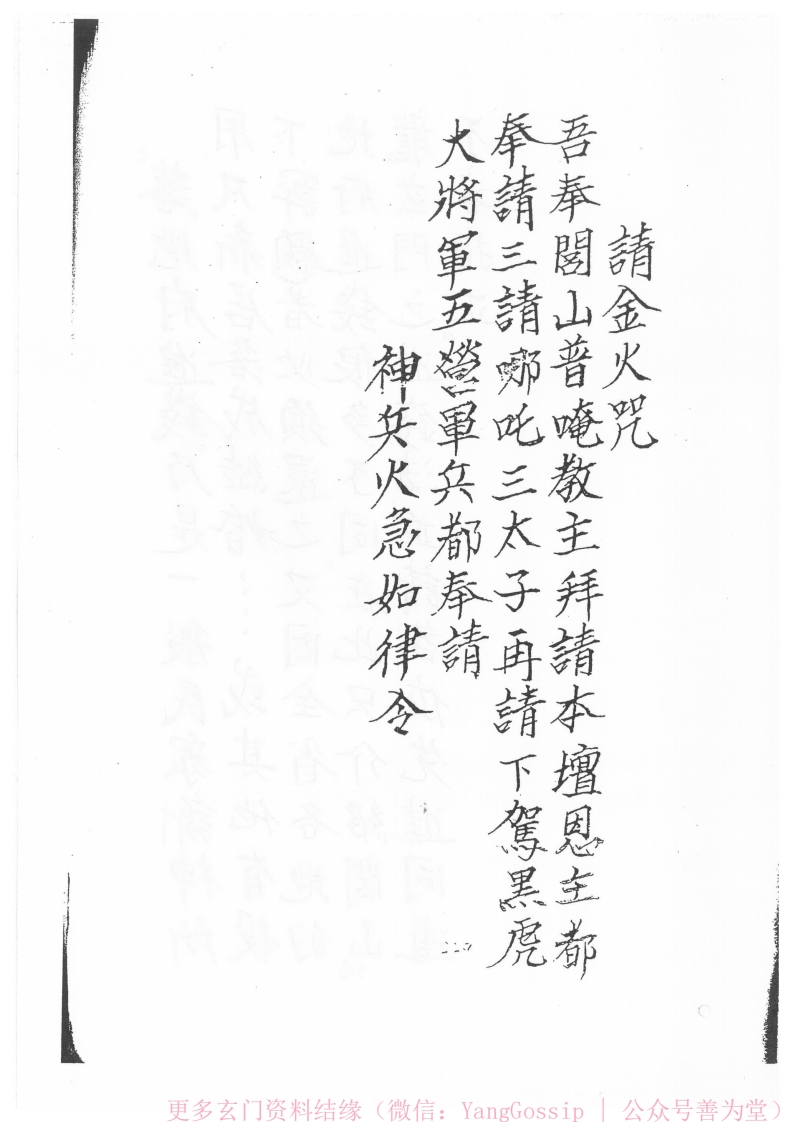 請金火咒
吾奉閭山普唵教主拜請本壇恩主都
奉請三請哪吒三太子再請下駕黑虎
大將軍五營軍兵都奉請
神兵火急如律令
更多玄门资料结缘（微信：YangGossip | 公众号善为堂）